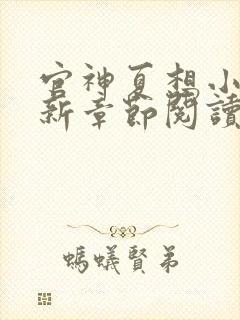 官神夏想小
新章節閱讀
螞蟻賢弟